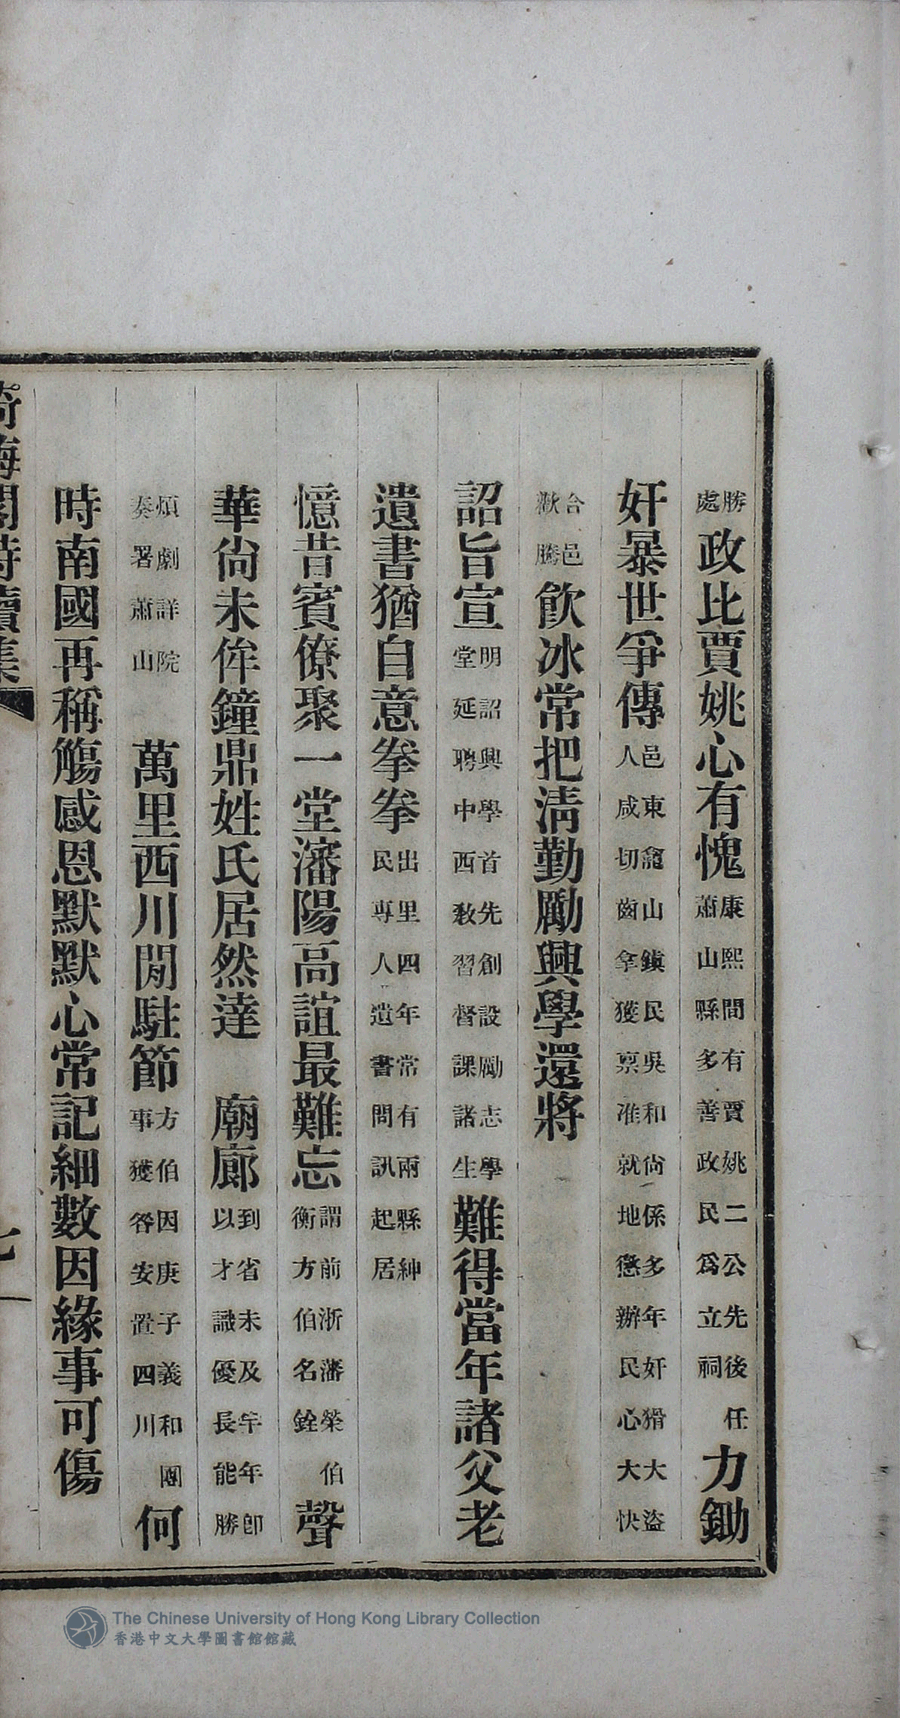 勝處政比賈姚心有愧康熙間有賈姚二公先後任蕭山縣多善政民爲立祠力鋤
奸暴世爭傳邑東龕山鎮民吳和尙係多年奸猾大盜人咸切齒拿獲禀准就地懲辦民心大快
合邑歡騰飮冰常把淸勤勵興學還將
詔旨宣明詔興學首先創設勵志學堂延聘中西敎習督課諸生難得當年諸父老
遺書猶自意拳拳出里四年常有兩縣紳民專人遺書問訊起居
憶昔賓僚聚一堂瀋陽高誼最難忘謂前浙藩榮伯衡方伯名銓聲
華尙未侔鐘鼎姓氏居然達 廟廊到省未及年卽以才識優長能勝
煩劇詳院奏署蕭山 萬里西川閒駐節方伯因庚子義和團事獲咎安置四川何
時南國再稱觴感恩默默心常記細數因緣事可傷
海閣詩續集
The Chinese University of Hong Kong Library Collection
香港中文大學圖書館館藏